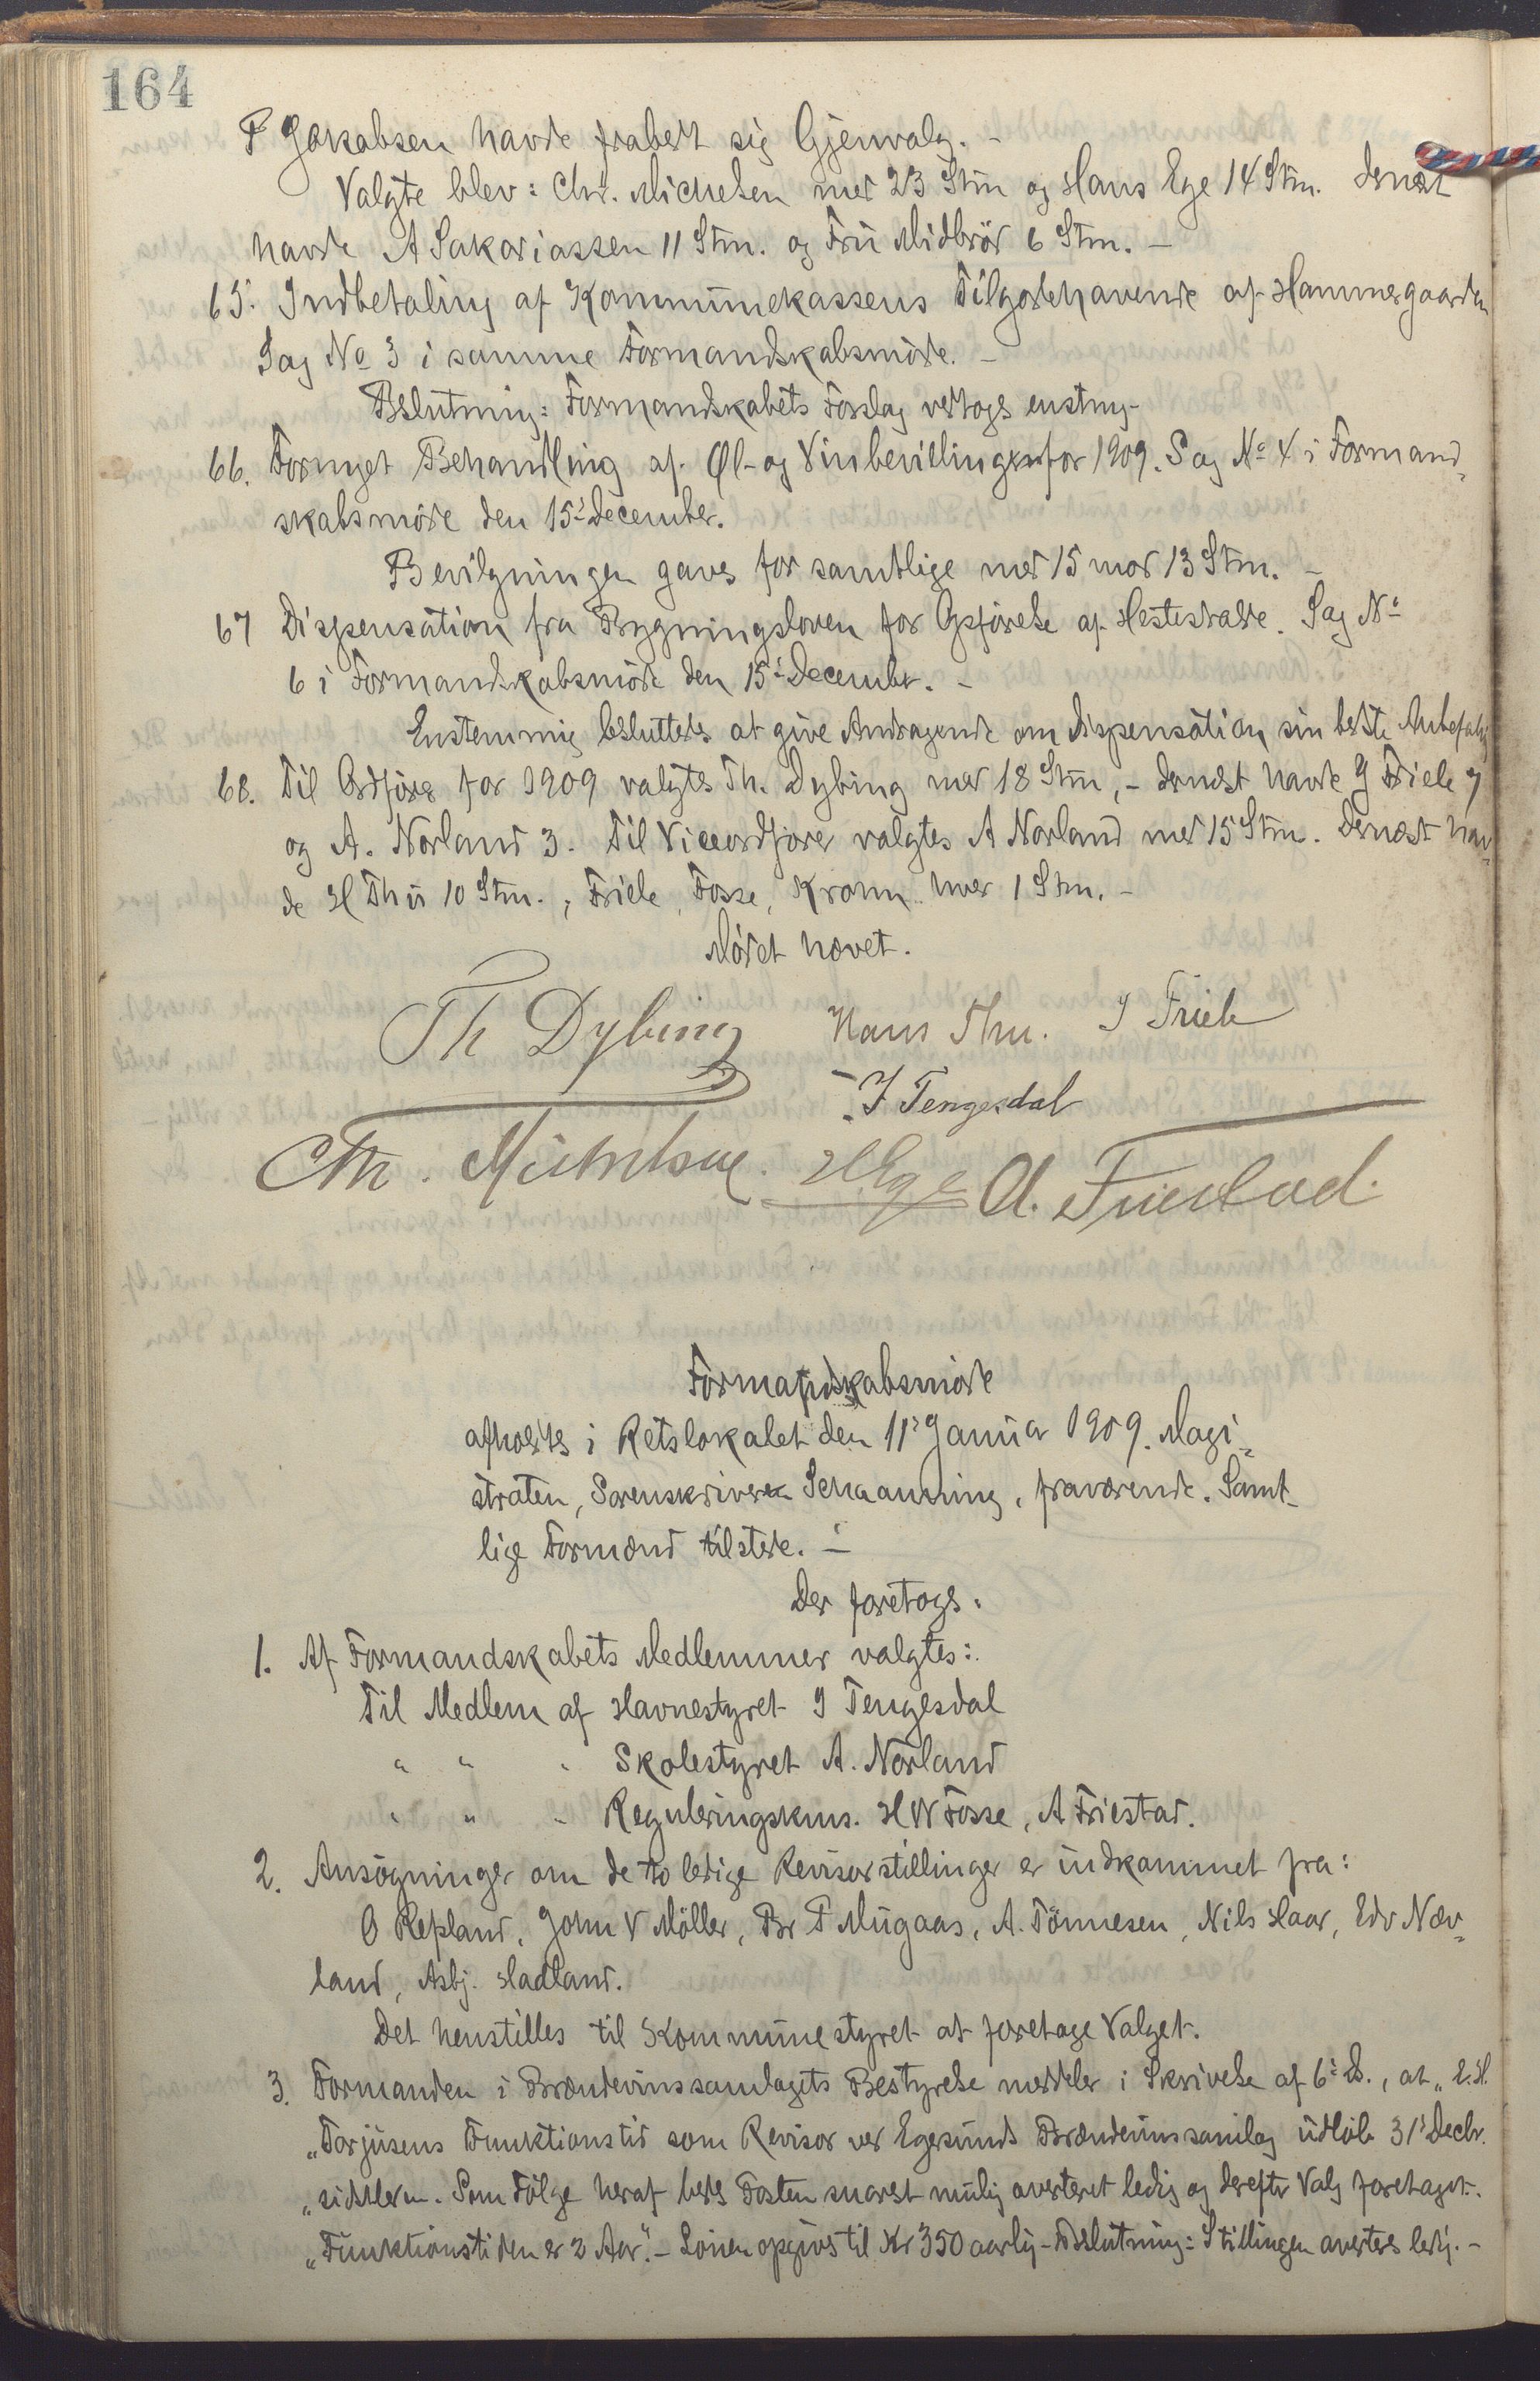 164
P Jakobsen havde frabedt sig Gjenvalg. -
Valgte blev: Chr. Michelsen med 23 Stm og Hans Ege 14 Stm. Dernæst
havde A Sakariassen 11 Stm. og Fru Midbrød 6 Stm. -
65. Indbetaling af Kommunekassens Tilgodehavende af Hammergaarden
Sag No 3 i samme Formandskabsmöde. -
Beslutning: Formandskabets Forslag vedtoges enstmg.
66. Fornyet Behandling af Øl- og Vinbevillingen for 1909. Sag No 4 i Formand-
skabsmöde den 15' December.
Bevilgningen gaves for samtlige med 15 mod 13 Stm. -
67 Dispensation fra Bygningsloven for Opförelse af Hestestalde. Sag No
6 i Formandskabsmöde den 15' December. -
Enstemmig besluttedes at give Andragende om Dispensation sin bedste Anbefaling
68. Til Ordförer for 1909 valgtes Th. Dybing med 18 Stm, - dernæst havde J Friele 7
og A. Nørland 3. Til Viceordförer valgtes A Nørland med 15 Stm. Dernæst hav-
de H Thu 10 Stm., Friele, Fosse, Krohn hver 1 Stm. -
Mödet hævet.
Th Dybing Hans Thu. J Friele
J Tengesdal
Chr. Michelsen. H Ege A. Friestad.
Formandskabsmöde
afholdtes i Retslokalet den 11' Januar 1909. Magi-
straten, Sorenskriver Schaanning, fraværende. Samt-
lige Formænd tilstede. -
Der foretoges:
1. Af Formandskabets Medlemmer valgtes:
Til Medlem af Havnestyret J Tengesdal
" " " Skolestyret A. Nørland
" " " Reguleringskms. H W Fosse, A Friestad.
2. Ansögninger om de to ledige Revisorstillinger er indkommet fra:
O Repland, John V Möller, Br T Mugaas, A. Tönnesen, Nils Haar, Edv Næv-
land, Asbj. Hadland.
Det henstilles til Kommunestyret at foretage Valget.
3. Formanden i Brændevinssamlagets Bestyrelse meddeler i Skrivelse af 6' ds., at "E. H.
"Torjusens Funktionstid som Revisor ved Egersunds Brændevinssamlag udlöb 31' Decbr.
"sidstleden. Som Fölge heraf bedes Posten snarest mulig averteret ledig og derefter Valg foretaget.
"Funktionstiden er 2 Aar." - Lönnen opgives til Kr 350 aarlig - Beslutning: Stillingen averteres ledig. -